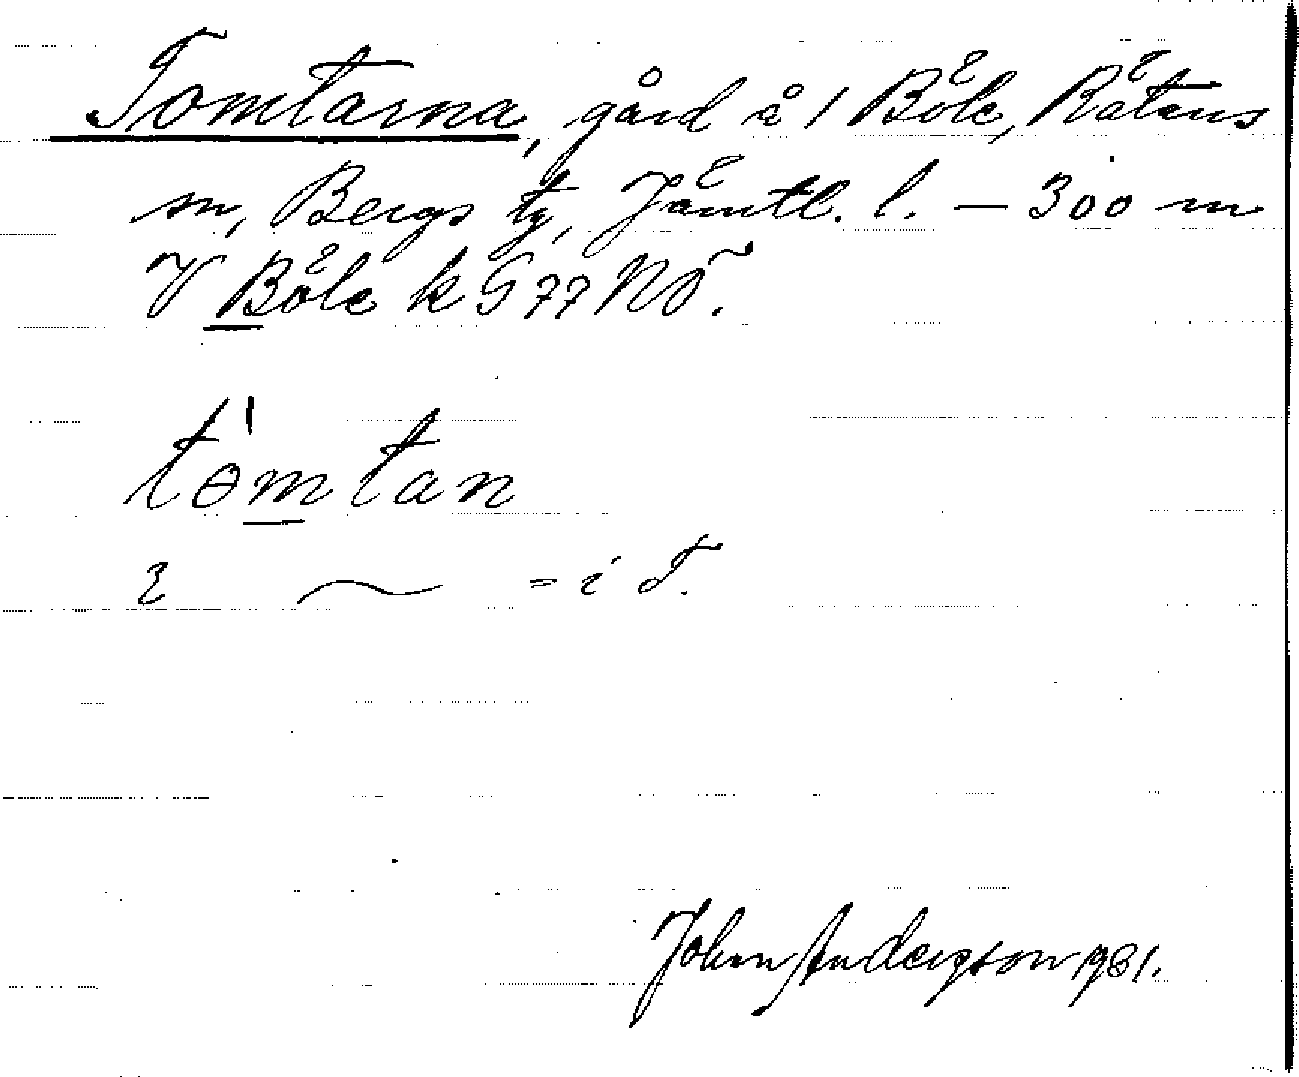 Tomtarna, gård å 1 Böle, Rätans
sn, Bergs tg, Jämtl. l. — 300 m
V Böle k G 77 NÖ.
tômtan
2 ~ = i T.
John Anderzson 1981.